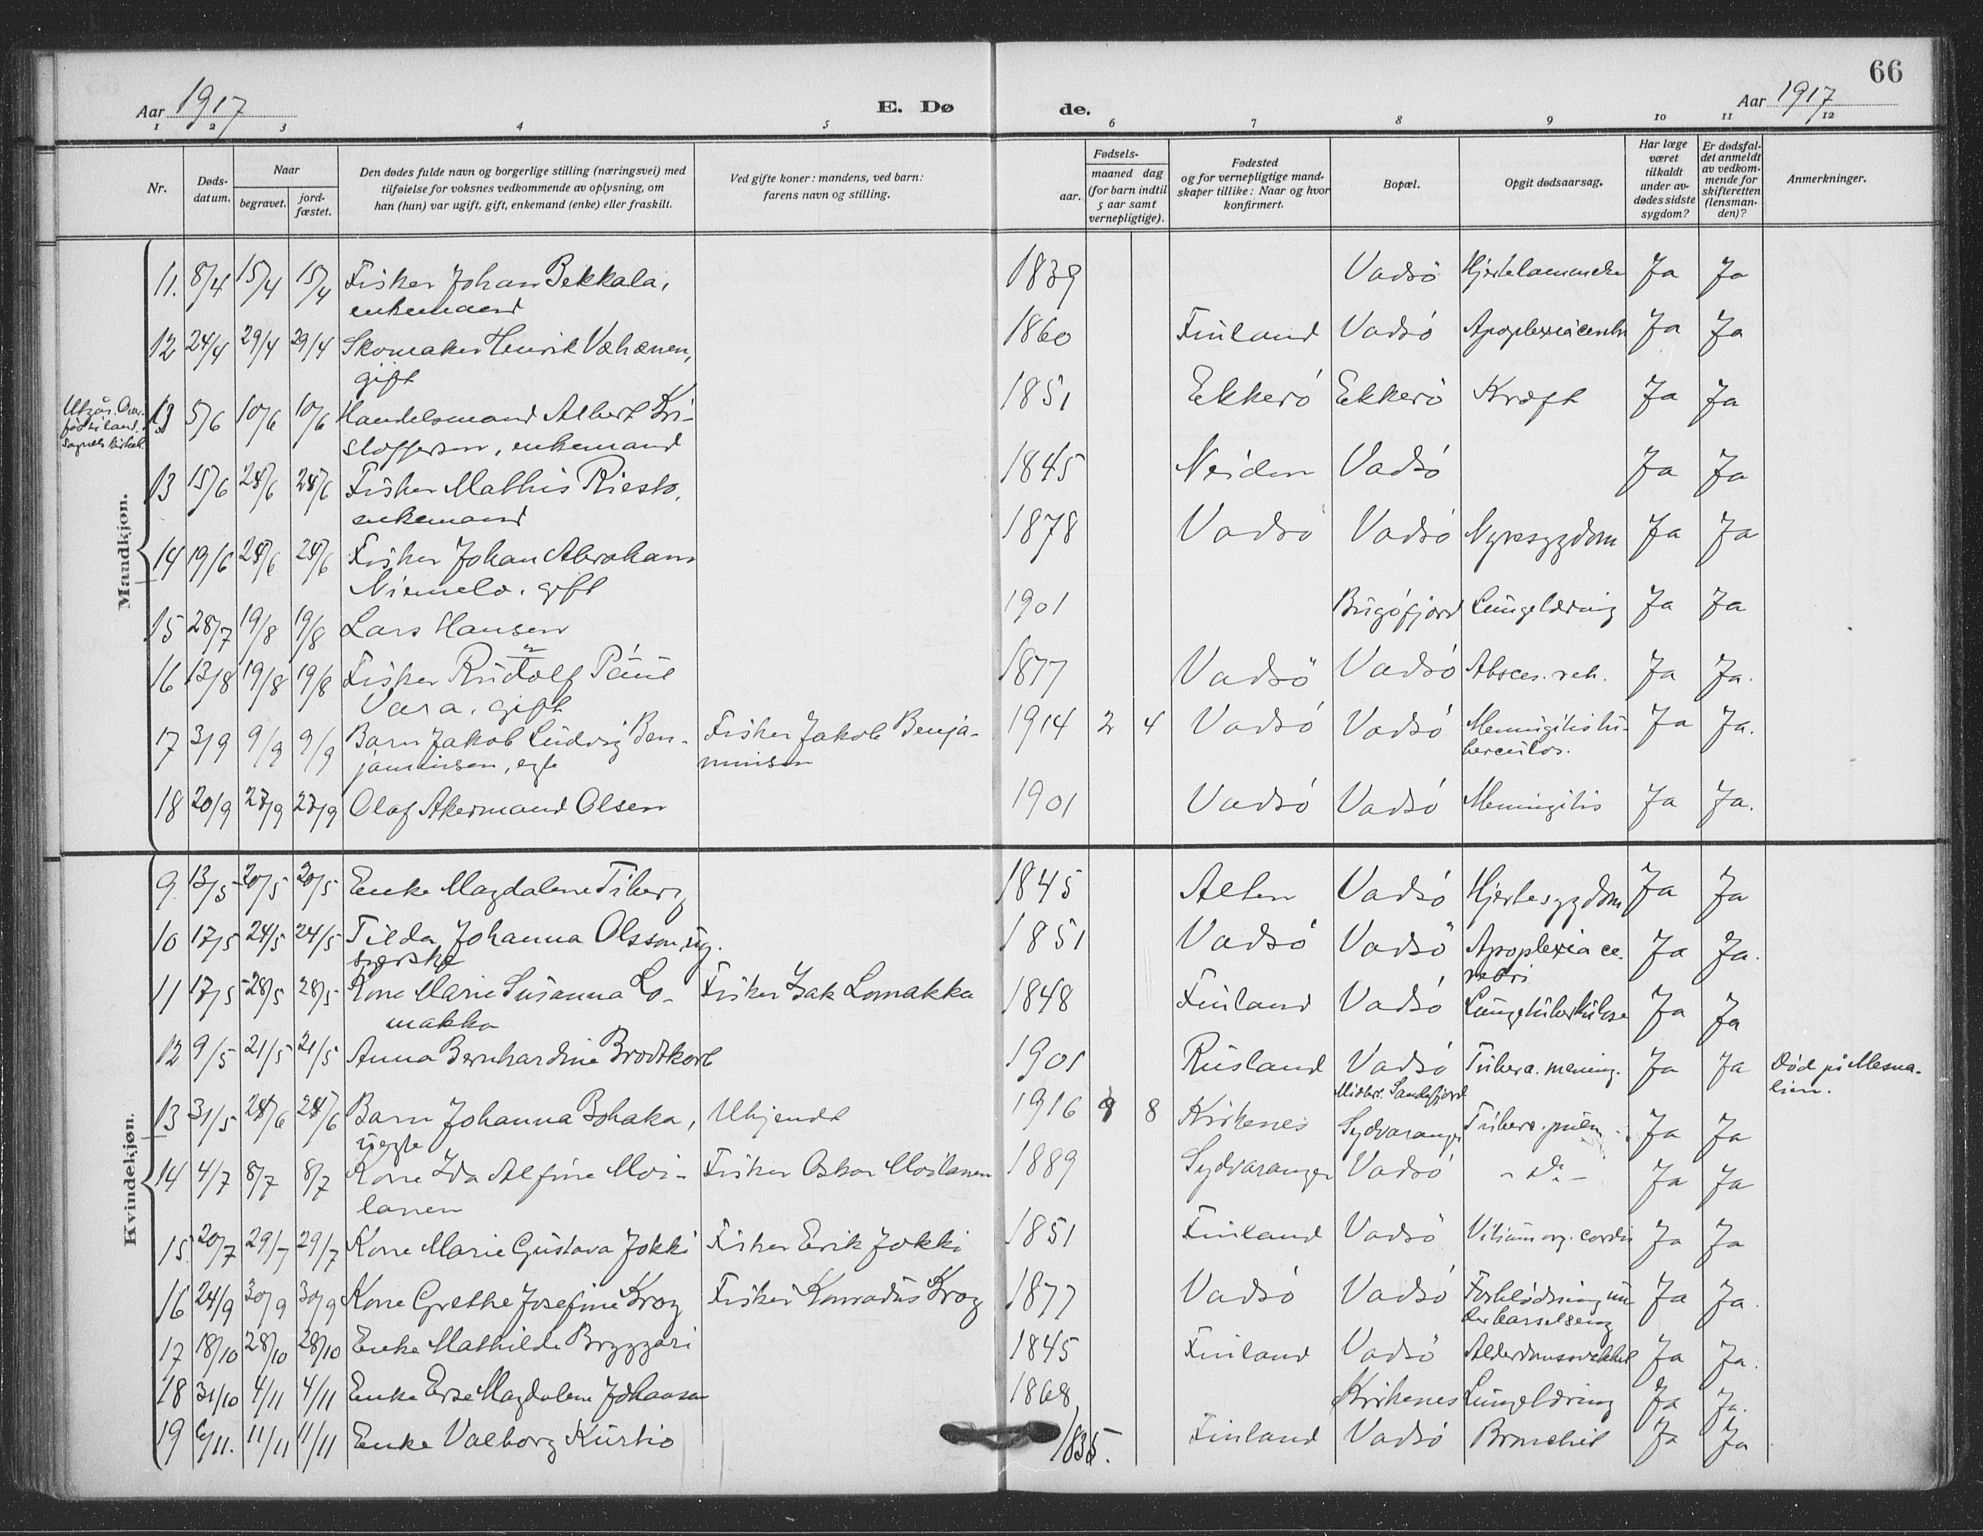 66
Aar 1917
E. Dø
de.
Aar 1917
1 2 3 4 5 6 7 8 9 10 11 12
Nr.
Døds-
datum.
Naar
begravet.
jord-
fæstet.
Den dødes fulde navn og borgerlige stilling (næringsvei) med
tilføielse for voksnes vedkommende av oplysning, om
han (hun) var ugift, gift, enkemand (enke) eller fraskilt.
Ved gifte koner: mandens, ved barn:
farens navn og stilling.
Fødsels-
aar.
maaned dag
(for barn indtil
5 aar samt
vernepligtige).
Fødested
og for vernepligtige mand-
skaper tillike: Naar og hvor
konfirmert.
Bopæl.
Opgit dødsaarsag.
Har læge
været
tilkaldt
under av-
dødes sidste
sygdom?
Er dødsfal-
det anmeldt
av vedkom-
mende for
skifteretten
(lensman-
den)?
Anmerkninger.
Mandkjøn.
11. 8/4 15/4 15/4 Fisker Johan Pekkala, 1839 Vadsö Ja Ja
enkemand
12 24/4 29/4 29/4 Skomaker Henrik Væhænen, 1860 Finland Vadsö Apoplexia cerebri Ja Ja
gift
13 5/6 10/6 10/6 Handelsmand Albert Kri- 1851 Ekkerö Ekkerö Kræft Ja Ja
stoffersen, enkemand
13 15/6 24/6 24/6 Fisker Mathis Riesto, 1845 Neiden Vadsö Ja Ja
enkemand
14 19/6 24/6 24/6 Fisker Johan Abraham 1878 Vadsö Vadsö Nyresygdom Ja Ja
Niemelæ. gift
15 28/7 19/8 19/8 Lars Hansen 1901 Bugöfjord Lungetæring Ja Ja
16 13/8 19/8 19/8 Fisker Rudolf Paul 1877 Vadsö Vadsö Absces. reh. Ja Ja.
Vara. gift
17 3/9 9/9 9/9 Barn Jakob Ludvig Ben- Fisker Jakob Benja- 1914 2 4 Vadsö Vadsö Meningitis tu- Ja Ja.
jaminsen, egte minsen berculos.
18 20/9 27/9 27/9 Olaf Akermand Olsen 1901 Vadsö Vadsö Meningitis Ja Ja.
Kvindekjøn.
9 13/5 20/5 20/5 Enke Magdalene Tiberg 1845 Alten Vadsö Hjertesygdom Ja Ja
10 17/5 24/5 24/5 Tilda Johanna Olsson, ug. 1851 Vadsö Vadsö Apoplexia ce- Ja Ja.
syerske rebri
11 17/5 28/5 28/5 Kone Marie Susanna Lo- Fisker Isak Lomakka 1848 Finland Vadsö Lungetuberkulose Ja Ja
makka
12 9/5 21/5 21/5 Anna Bernhardine Brodtkorb 1901 Rusland Vadsö Tuberc. mening. Ja Ja Död på Mesna-
lien.
Midler. Sandefjord
13 31/5 24/6 24/6 Barn Johanna Bshaka, Ubekjendt 1916 9 8 Kirkenes Sydvaranger Tuberc. pulm. Ja Ja
uegte
14 4/7 8/7 8/7 Kone Ida Alfine Moi- Fisker Oskar Moilanen 1889 Sydvaranger Vadsö - do - Ja Ja
lanen
15. 20/7 29/7 29/7 Kone Marie Gustava Jokki Fisker Erik Jokki 1851 Finland Vadsö Vitium org. cordis Ja Ja
16 24/9 30/9 30/9 Kone Grethe Josefine Krog Fisker Konradus Krog 1877 Vadsö Vadsö Forblödning un- Ja Ja.
der barselseng
17 18/10 28/10 28/10 Enke Mathilde Bryggari 1845 Finland Vadsö Alderdomssvækket Ja Ja.
18 31/10 4/11 4/11 Enke Magdalene Johansen 1868 Kirkenes Lungetæring Ja Ja.
19 6/11. 11/11 11/11 Enke Valborg Kurtio 1835. Finland Vadsö Bronchit Ja Ja